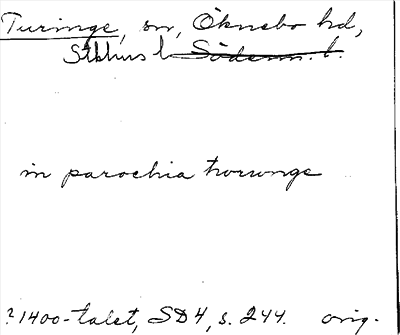 Turinge, sn, Öknebo hd,
Sthlms l Söderm. l.
in parochia thorunge
? 1400-talet, SD 4, s. 244. orig.